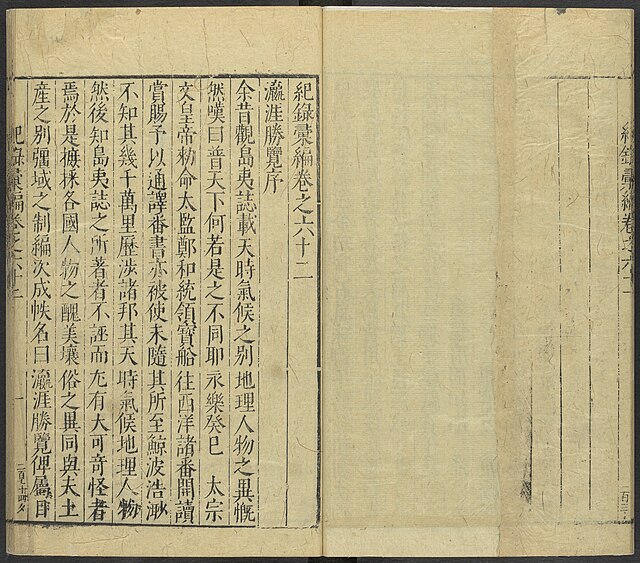 紀錄彙編卷之六十二
瀛涯勝覽序
余昔觀島夷誌載天時氣候之別地理人物之異慨
然嘆曰普天下何若是之不同耶永樂癸巳 太宗
文皇帝勑命太監鄭和統領寶船往西洋諸番開讀
賞賜予以通譯番書亦被使末隨其所至鯨波浩渺
不知其幾千萬里歷涉諸邦其天時氣候地理人物
然後知島夷誌之所著者不誣而尤有大可奇怪者
焉於是摭采各國人物之醜美壤俗之異同與夫土
產之別疆域之制編次成帙名曰瀛涯勝覽俾屬目
紀錄彙編卷之六十二
一
紀錄彙編卷之六十二